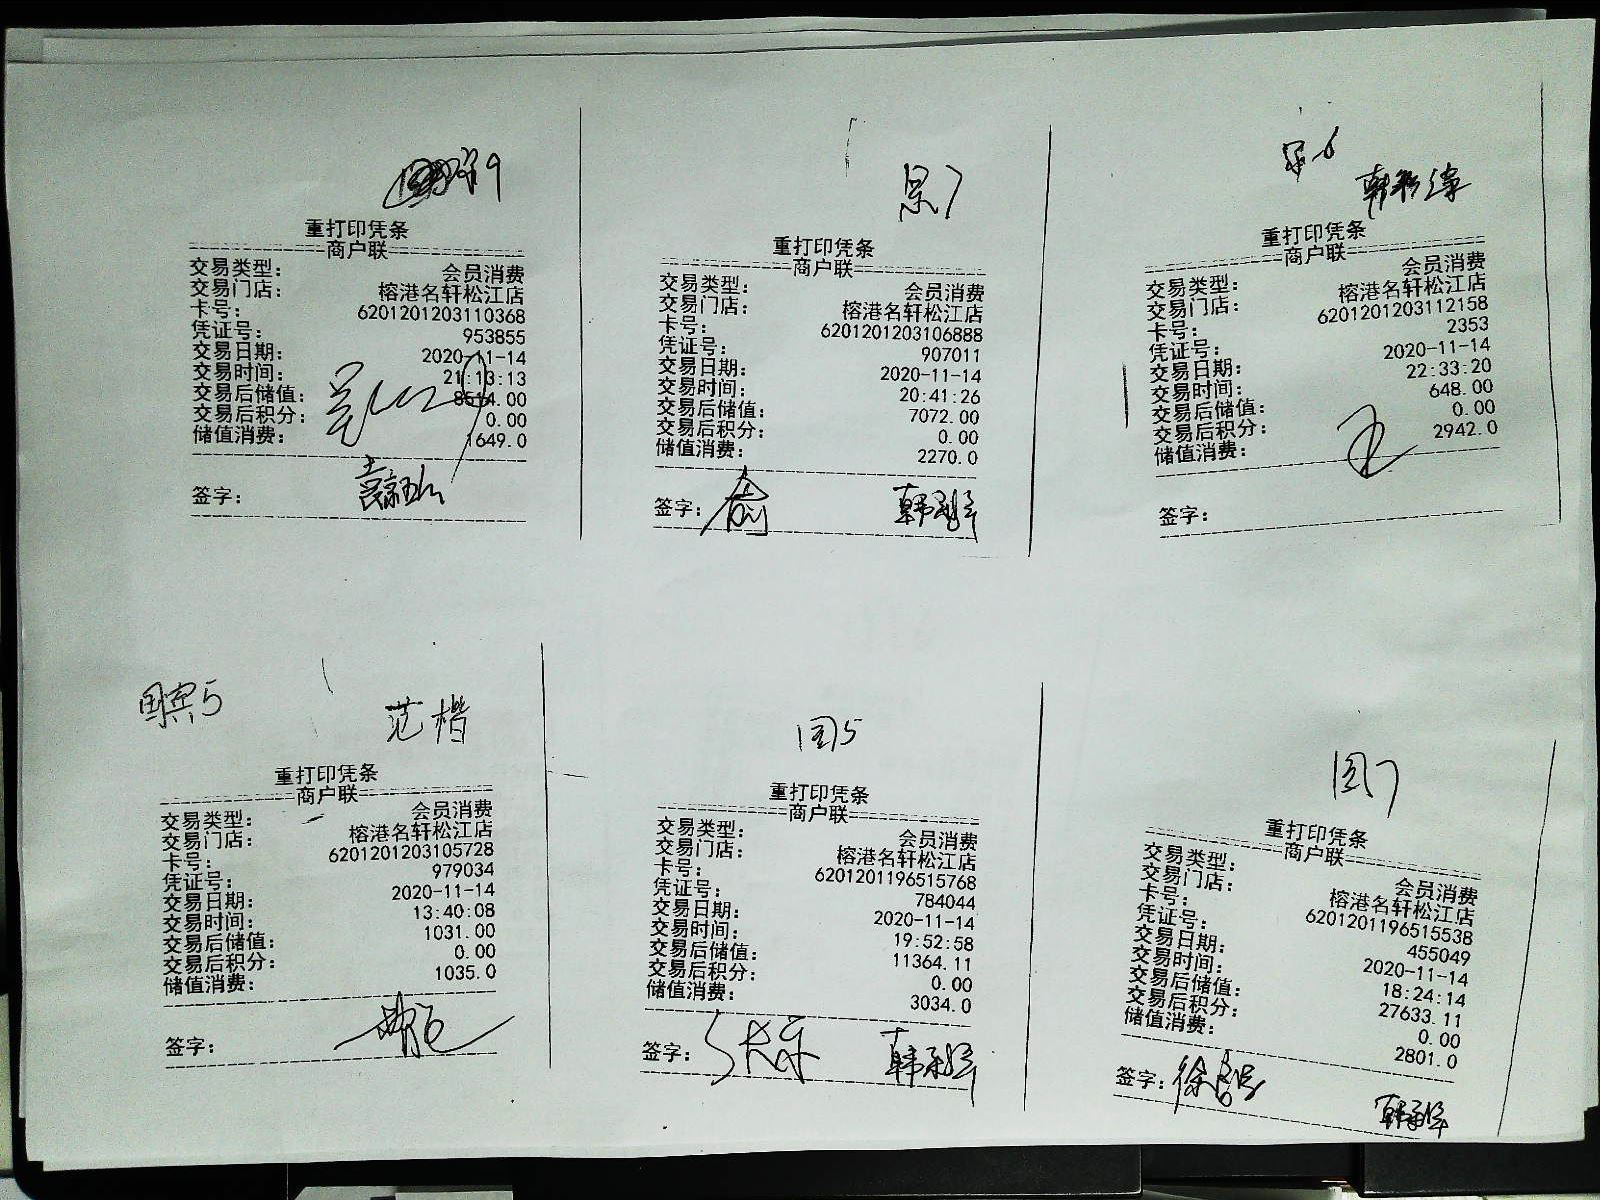 9
重打印凭条
======商户联======
交易类型： 会员消费
交易门店： 榕港名轩松江店
卡号： 6201201203110368
凭证号： 953855
交易日期： 2020-11-14
交易时间： 21:13:13
交易后储值： 8514.00
交易后积分： 0.00
储值消费： 1649.0
签字：
景7
重打印凭条
======商户联======
交易类型： 会员消费
交易门店： 榕港名轩松江店
卡号： 6201201203106888
凭证号： 907011
交易日期： 2020-11-14
交易时间： 20:41:26
交易后储值： 7072.00
交易后积分： 0.00
储值消费： 2270.0
签字： 俞
6
重打印凭条
======商户联======
交易类型： 会员消费
交易门店： 榕港名轩松江店
卡号： 6201201203112158
凭证号： 2353
交易日期： 2020-11-14
交易时间： 22:33:20
交易后储值： 648.00
交易后积分： 0.00
储值消费： 2942.0
签字：
国宾5
范楷
重打印凭条
======商户联======
交易类型： 会员消费
交易门店： 榕港名轩松江店
卡号： 6201201203105728
凭证号： 979034
交易日期： 2020-11-14
交易时间： 13:40:08
交易后储值： 1031.00
交易后积分： 0.00
储值消费： 1035.0
签字：
国5
重打印凭条
======商户联======
交易类型： 会员消费
交易门店： 榕港名轩松江店
卡号： 6201201196515768
凭证号： 784044
交易日期： 2020-11-14
交易时间： 19:52:58
交易后储值： 11364.11
交易后积分： 0.00
储值消费： 3034.0
签字：
国7
重打印凭条
======商户联======
交易类型： 会员消费
交易门店： 榕港名轩松江店
卡号： 6201201196515538
凭证号： 455049
交易日期： 2020-11-14
交易时间： 18:24:14
交易后储值： 27633.11
交易后积分： 0.00
储值消费： 2801.0
签字：